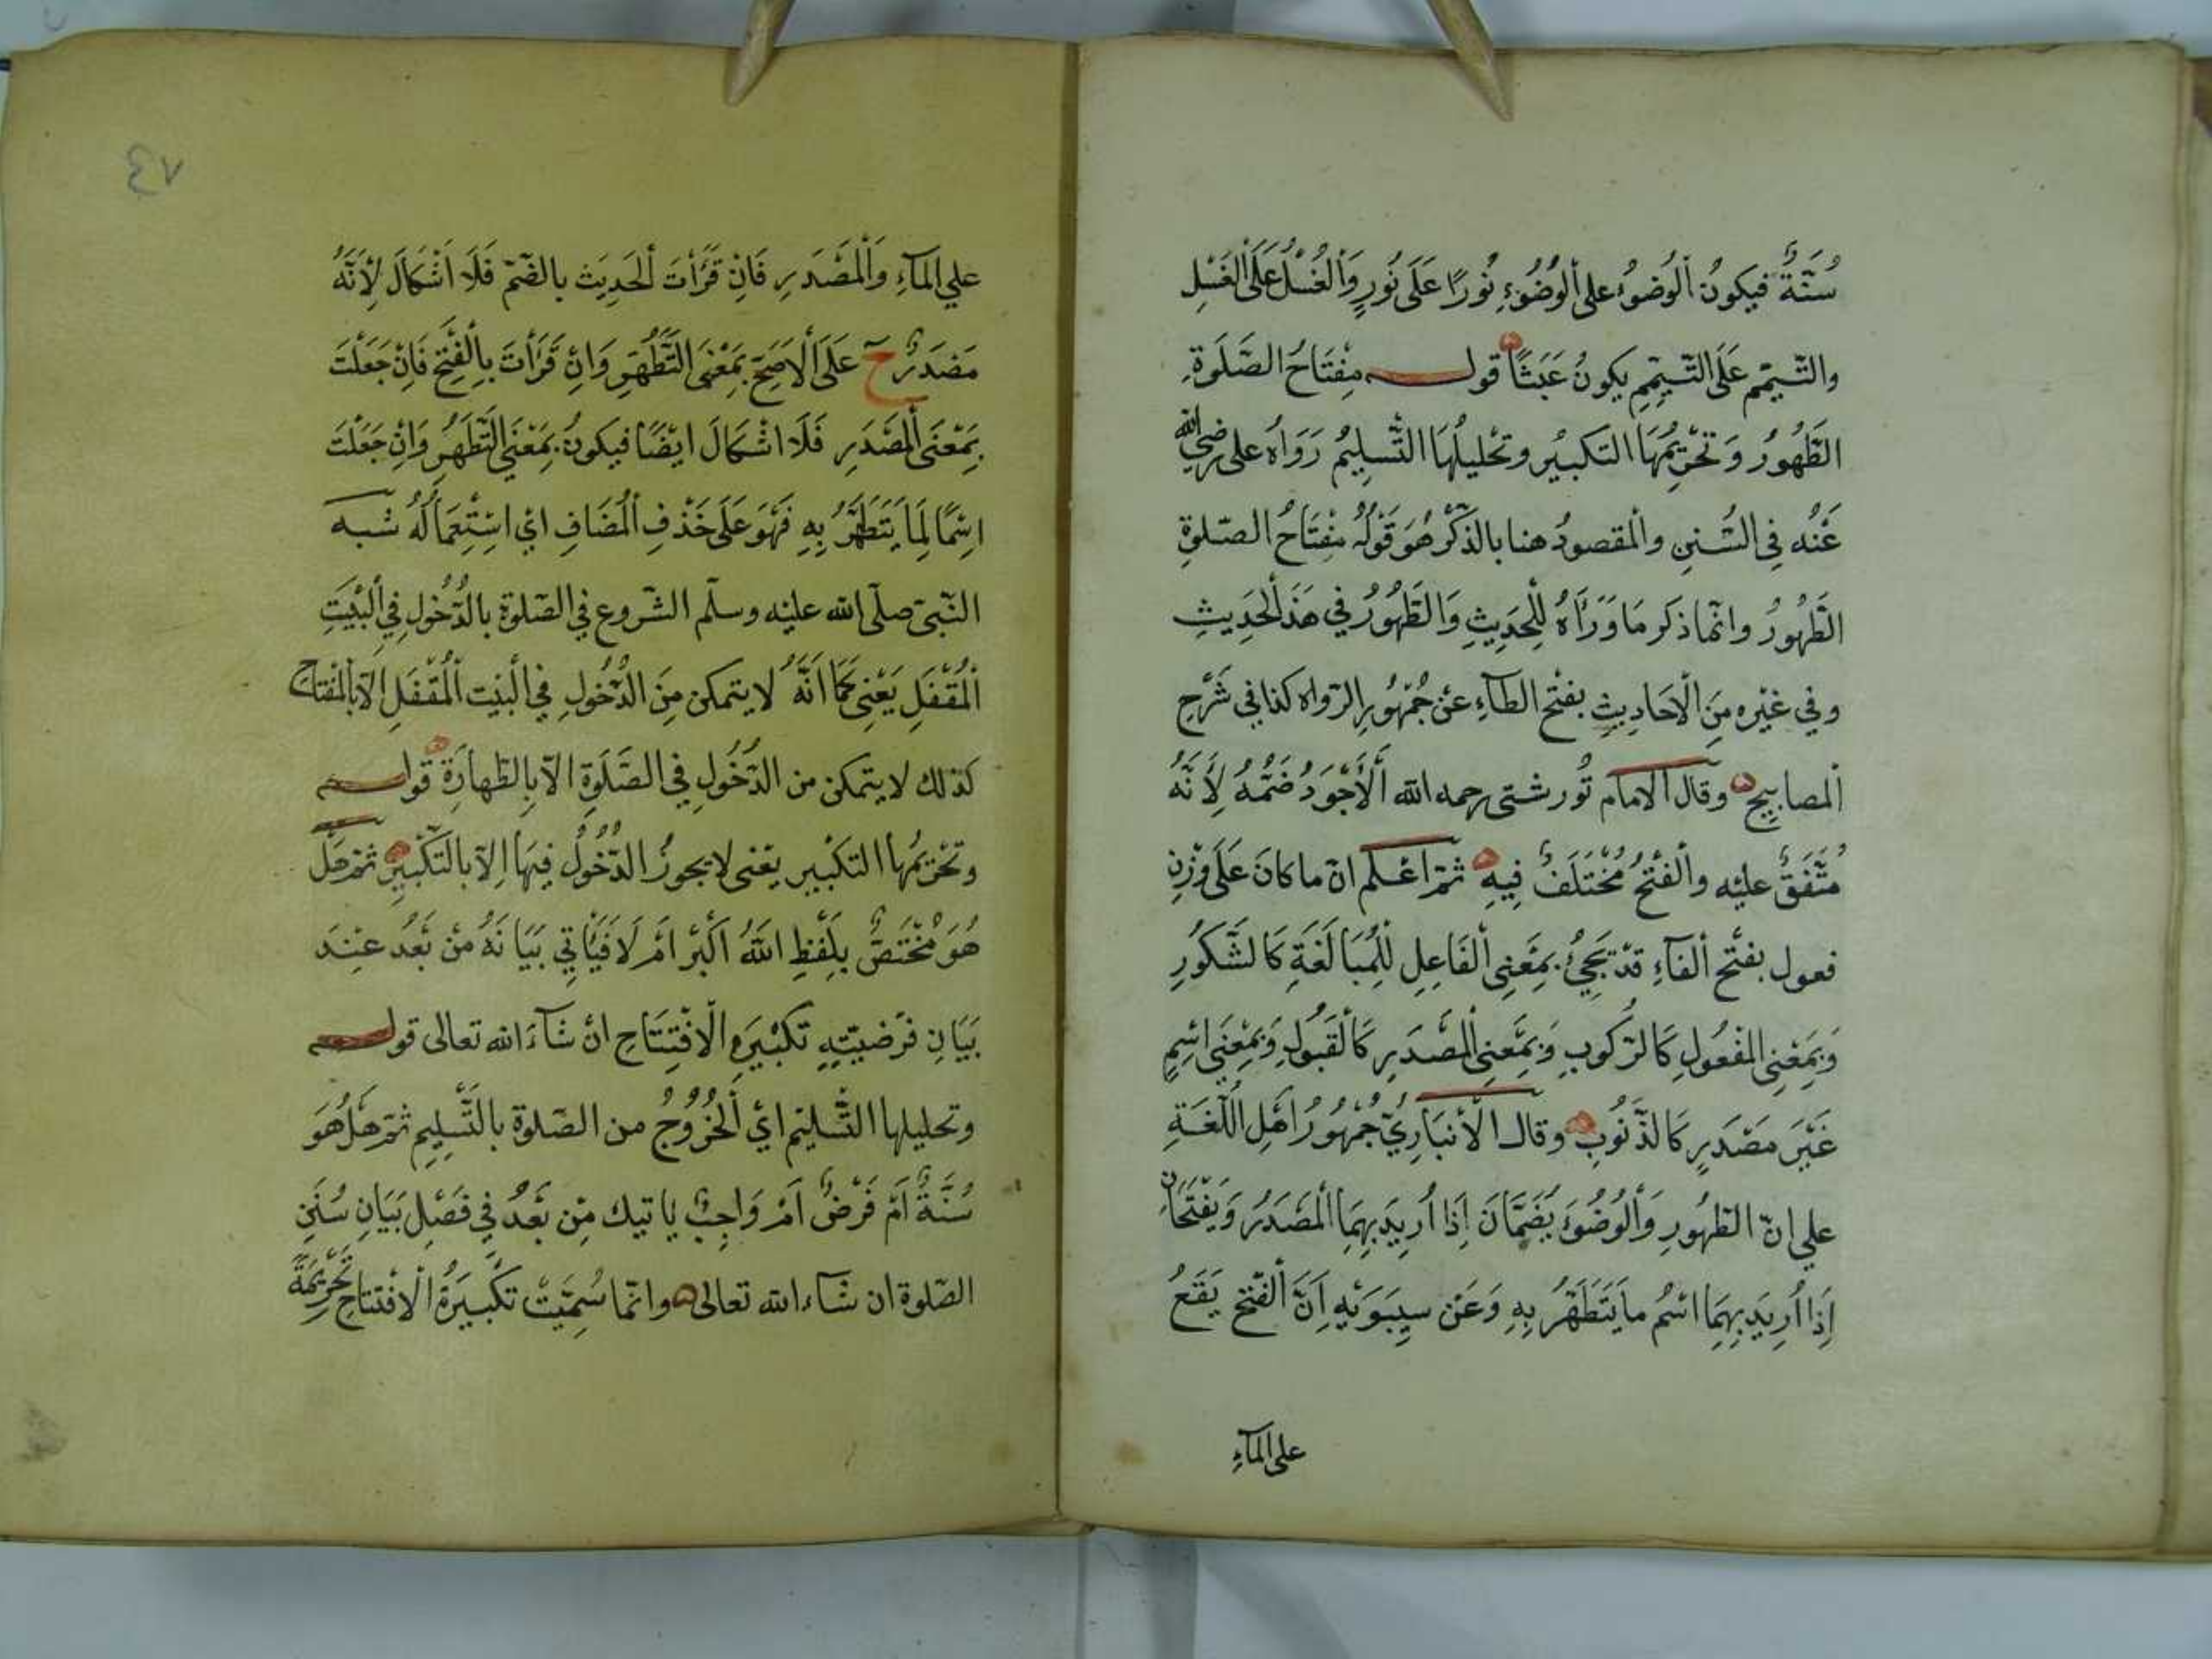 سُنَّةٌ فيكونُ الْوُضوُءُ على الْوُضُوُءِ نُورًا عَلَى نُورٍ وَالْغُسْلُ عَلَى الْغُسْلِ
والتّيمّم عَلَى التّيمّمِ يكونُ عَبَثًا قوله مِفْتَاحُ الصَّلَوةِ
الطَّهُورُ وَتَحْرِيمُهَا التكبيُر وتحْليلُهَا التَّسليمُ رَوَاهُ على رضي الله
عَنْهُ فِي السُّنَنِ والْمقصودُ هنا بالذّكْرِ هُوَ قَوْلُهُ مِفْتَاحُ الصّلوةِ
الطَّهُورُ وانّما ذكر مَا وَرَاَهُ لِلْحَدِيثِ وَالطَّهُورُ في هَذَ الْحَدِيثِ
وفي غيْره مِنَ الْاَحَادِيثِ بفتْح الطآءِ عنْ جُمْهُورِ الرّواه كذا في شَرْحِ
الْمصابِيحِ وقَالَ الامام تُورشتى رحمه الله اَلْاَجْوَدُ ضَمُّهُ لِاَنَّهُ
مُتَّفَقٌ عليْه والْفَتْحُ مُخْتَلَفٌ فِيهِ ثمّ اعْلم انّ ما كانَ عَلَى وَزْنِ
فعول بفتْح الْفآءِ قدْ يَجِئُ بِمَعْنِى الْفَاعِلِ لِلْمُبَالَغَةِ كَالشَّكُورِ
وَبِمَعْنِى الْمفْعُولِ كَالرّكُوبِ وَبِمَعْنِى الْمصْدَرِ كَالْقَبُولِ وَبِمَعْنِى اسْمٍ
غَيْرَ مَصْدَرٍ كَالذَّنُوبِ وقالَ الْاَنْبَارِيُّ جُمْهُورُ اَهْلِ اللُّغَةِ
على انّ الطّهُورِ وَالْوُضُوَءَ يُضَمَّانَ اِذَا اُرِيَد بِهِمَا الْمَصْدَرُ وَيُفْتَحَانِ
اِذَا اُرِيَد بِهِمَا اسْمُ ما يَتَطَهَّرُ بِهِ وَعَنْ سيبَوَيْهِ اِنَّ الْفَتْحَ يَقَعُ
على المآءِ
٤٧
على الْمآءِ وَالْمَصْدَرِ فَاِنْ قَرَأتَ الْحَدِيَث بالضّمّ فَلَا اشْكَالَ لِاَنَّهُ
مَصْدَرٌ ح عَلَى الْاَصَحِّ بمَعْنَى التَّطَهُّرِ وَاِنْ قَرَأتَ بِالْفَتْحِ فَاِنْ جَعَلْتَ
بِمَعْنَى الْمصْدَرِ فَلَا اشْكَالَ ايْضًا فيكونُ بِمَعْنَى التَّطَهُّرِ وَاِنْ جَعَلْتَ
اسْمًا لِمَا يَتَطَهَّرُ بِهِ فَهُوَ عَلَى حَذْفِ الْمُضَافِ اي اسْتِعْمَالُهُ شبه
النّبىّ صلّى الله عليْه وسلّم الشّروع في الصّلوة بالدُّخُولِ فِي الْبَيْتِ
الْمُقْفَلِ يَعْنِى كَمَا اَنَّهُ لا يتمكن مِنَ الدُّخُولِ في الْبيْت الْمُقْفَلِ الّا بالْمفْتاح
كذلك لا يتمكن من الدُّخُولِ في الصَّلَوةِ الاّ بِالطّهارَةِ قوله
وتحْريمُها التكْبير يعْنى لا يجوزُ الدُّخُولُ فِيهَا اِلاّ بالتّكْبيرِ ثمّ هَلْ
هُوَ مُخْتَصٌّ بِلَفْظِ اَللهُ اَكْبَر اَمْ لَا فَيَأتِي بَيَانُهُ منْ بَعْدُ عنِدَ
بَيَانِ فَرْضيّتِهِ تكْبيَرةِ الْافْتِتَاحِ انْ شَآءَ الله تعالى قوله
وتحليلها التّسْليم اي الْخُرُوُجُ من الصّلوة بالتَّسْلِيمِ ثمّ هَلْ هُوَ
سُنَّةٌ اَمْ فَرْضٌ اَمْ وَاجِبٌ ياتيك مِنْ بَعْدُ فِي فَصْلِ بَيَانِ سُنَنِ
الصّلوة ان شَآءَ الله تعالى وانّما سُمِّيَتْ تكْبيرَةُ الْافْتتاحِ تَحْرِيمَةً